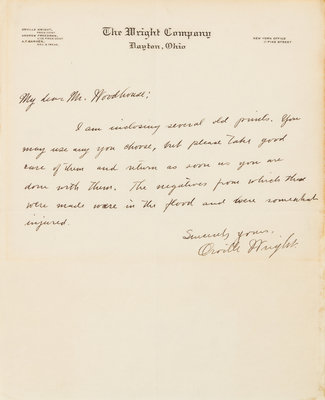 ORVILLE WRIGHT,
PRESIDENT
ANDREW FREEDMAN,
VICE PRESIDENT
A.F. BARNES,
SEC. & TREAS.
The Wright Company
Dayton, Ohio
NEW YORK OFFICE
11 PINE STREET
My dear Mr. Woodhouse;
I am inclosing several old prints. You
may use any you choose, but please take good
care of them and return as soon as you are
done with them. The negatives from which these
were made were in the flood and were somewhat
injured.
Sincerely yours,
Orville Wright.